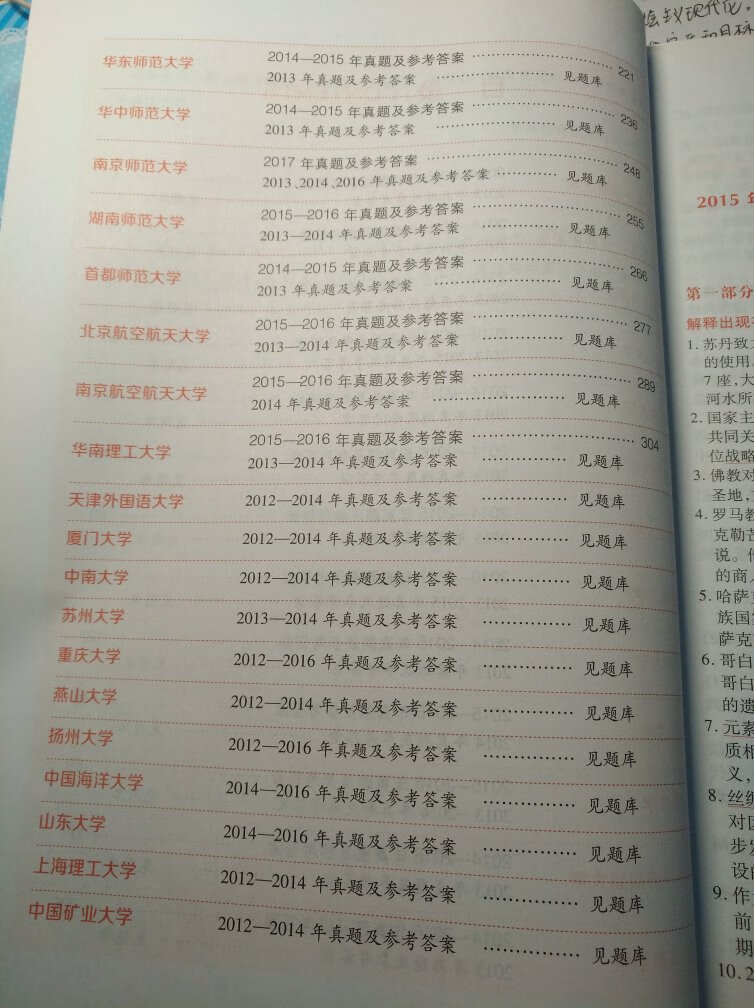 华东师范大学 2014—2015 年真题及参考答案 …………………… 221
2013 年真题及参考答案 ………………… 见题库
华中师范大学 2014—2015 年真题及参考答案 …………………… 236
2013 年真题及参考答案 ………………… 见题库
南京师范大学 2017 年真题及参考答案 …………………… 248
2013、2014、2016 年真题及参考答案 ………… 见题库
湖南师范大学 2015—2016 年真题及参考答案 …………………… 255
2013—2014 年真题及参考答案 …………… 见题库
首都师范大学 2014—2015 年真题及参考答案 …………………… 266
2013 年真题及参考答案 ………………… 见题库
北京航空航天大学 2015—2016 年真题及参考答案 …………………… 277
2013—2014 年真题及参考答案 …………… 见题库
南京航空航天大学 2015—2016 年真题及参考答案 …………………… 289
2014 年真题及参考答案 ………………… 见题库
华南理工大学 2015—2016 年真题及参考答案 …………………… 304
2013—2014 年真题及参考答案 …………… 见题库
天津外国语大学 2012—2014 年真题及参考答案 …………… 见题库
厦门大学 2012—2014 年真题及参考答案 …………… 见题库
中南大学 2012—2014 年真题及参考答案 …………… 见题库
苏州大学 2013—2014 年真题及参考答案 …………… 见题库
重庆大学 2012—2016 年真题及参考答案 …………… 见题库
燕山大学 2012—2014 年真题及参考答案 …………… 见题库
扬州大学 2012—2016 年真题及参考答案 …………… 见题库
中国海洋大学 2014—2016 年真题及参考答案 …………… 见题库
山东大学 2014—2016 年真题及参考答案 …………… 见题库
上海理工大学 2012—2014 年真题及参考答案 …………… 见题库
中国矿业大学 2012—2014 年真题及参考答案 …………… 见题库
现代化。
和目标
2015
第一部分
解释出现
1. 苏丹致
的使用
7 座,大
河水所
2. 国家主
共同关
位战略
3. 佛教对
圣地,
4. 罗马教
克勒
说。
的商
5. 哈萨
族国
萨克
6. 哥白
哥白
的遗
7. 元素
质相
义,
8. 丝绸
对
步发
设
9. 作
前
期
10. 2